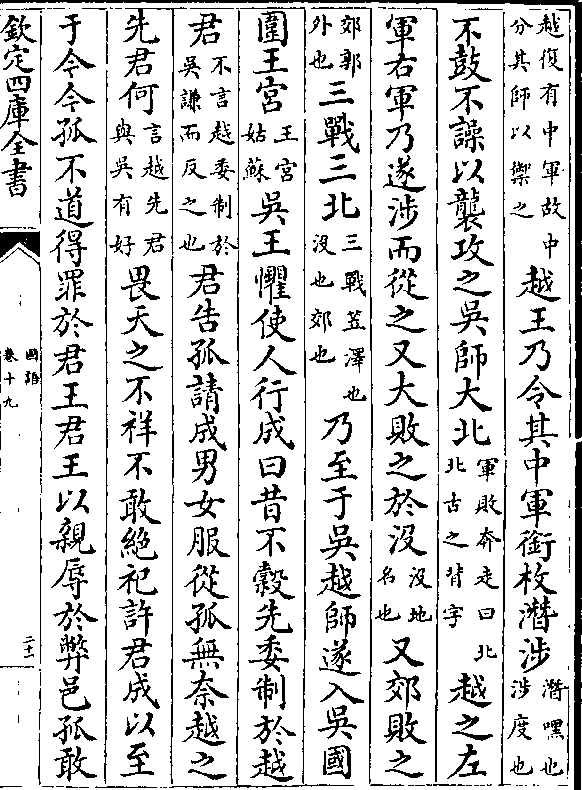 越復有中軍故中分其師以禦之越王乃令其中軍銜枚潛涉潛嘿也涉度也
不鼓不譟以襲攻之吳師大北軍敗奔走曰北北古之背字越之左
軍右軍乃遂涉而從之又大敗之於沒沒地名也又郊敗之
郊郭外也三戰三北三戰笠澤也沒也郊也乃至于吳越師遂入吳國
圍王宮王宮姑蘇吳王懼使人行成曰昔不穀先委制於越
君不言越委制於吳謙而反之也君告孤請成男女服從孤無奈越之
先君何言越先君與吳有好畏天之不祥不敢絶祀許君成以至
于今今孤不道得罪於君王君王以親辱於弊邑孤敢
欽定四庫全書
國語
卷十九
二十一